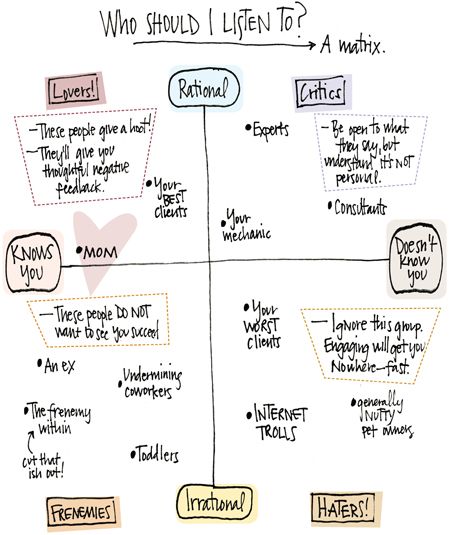 WHO SHOULD I LISTEN TO?
A matrix.
Lovers!
Rational
Critics
—These people give a hoot!
—They'll give you
thoughtful negative
feedback.
•Experts
—Be open to what
they say, but
understand it's NOT
personal.
•Your
BEST
clients
•Consultants
•Your
mechanic
KNOWS
you
•MOM
Doesn't
know
you
—These people DO NOT
want to see you succeed
•Your
WORST
clients
—Ignore this group.
Engaging will get you
Nowhere—fast.
•An ex
•Undermining
coworkers
•The frenemy
within
cut that
ish out!
•Toddlers
•INTERNET
TROLLS
•generally
NUTTY
pet owners
FRENEMIES
Irrational
HATERS!